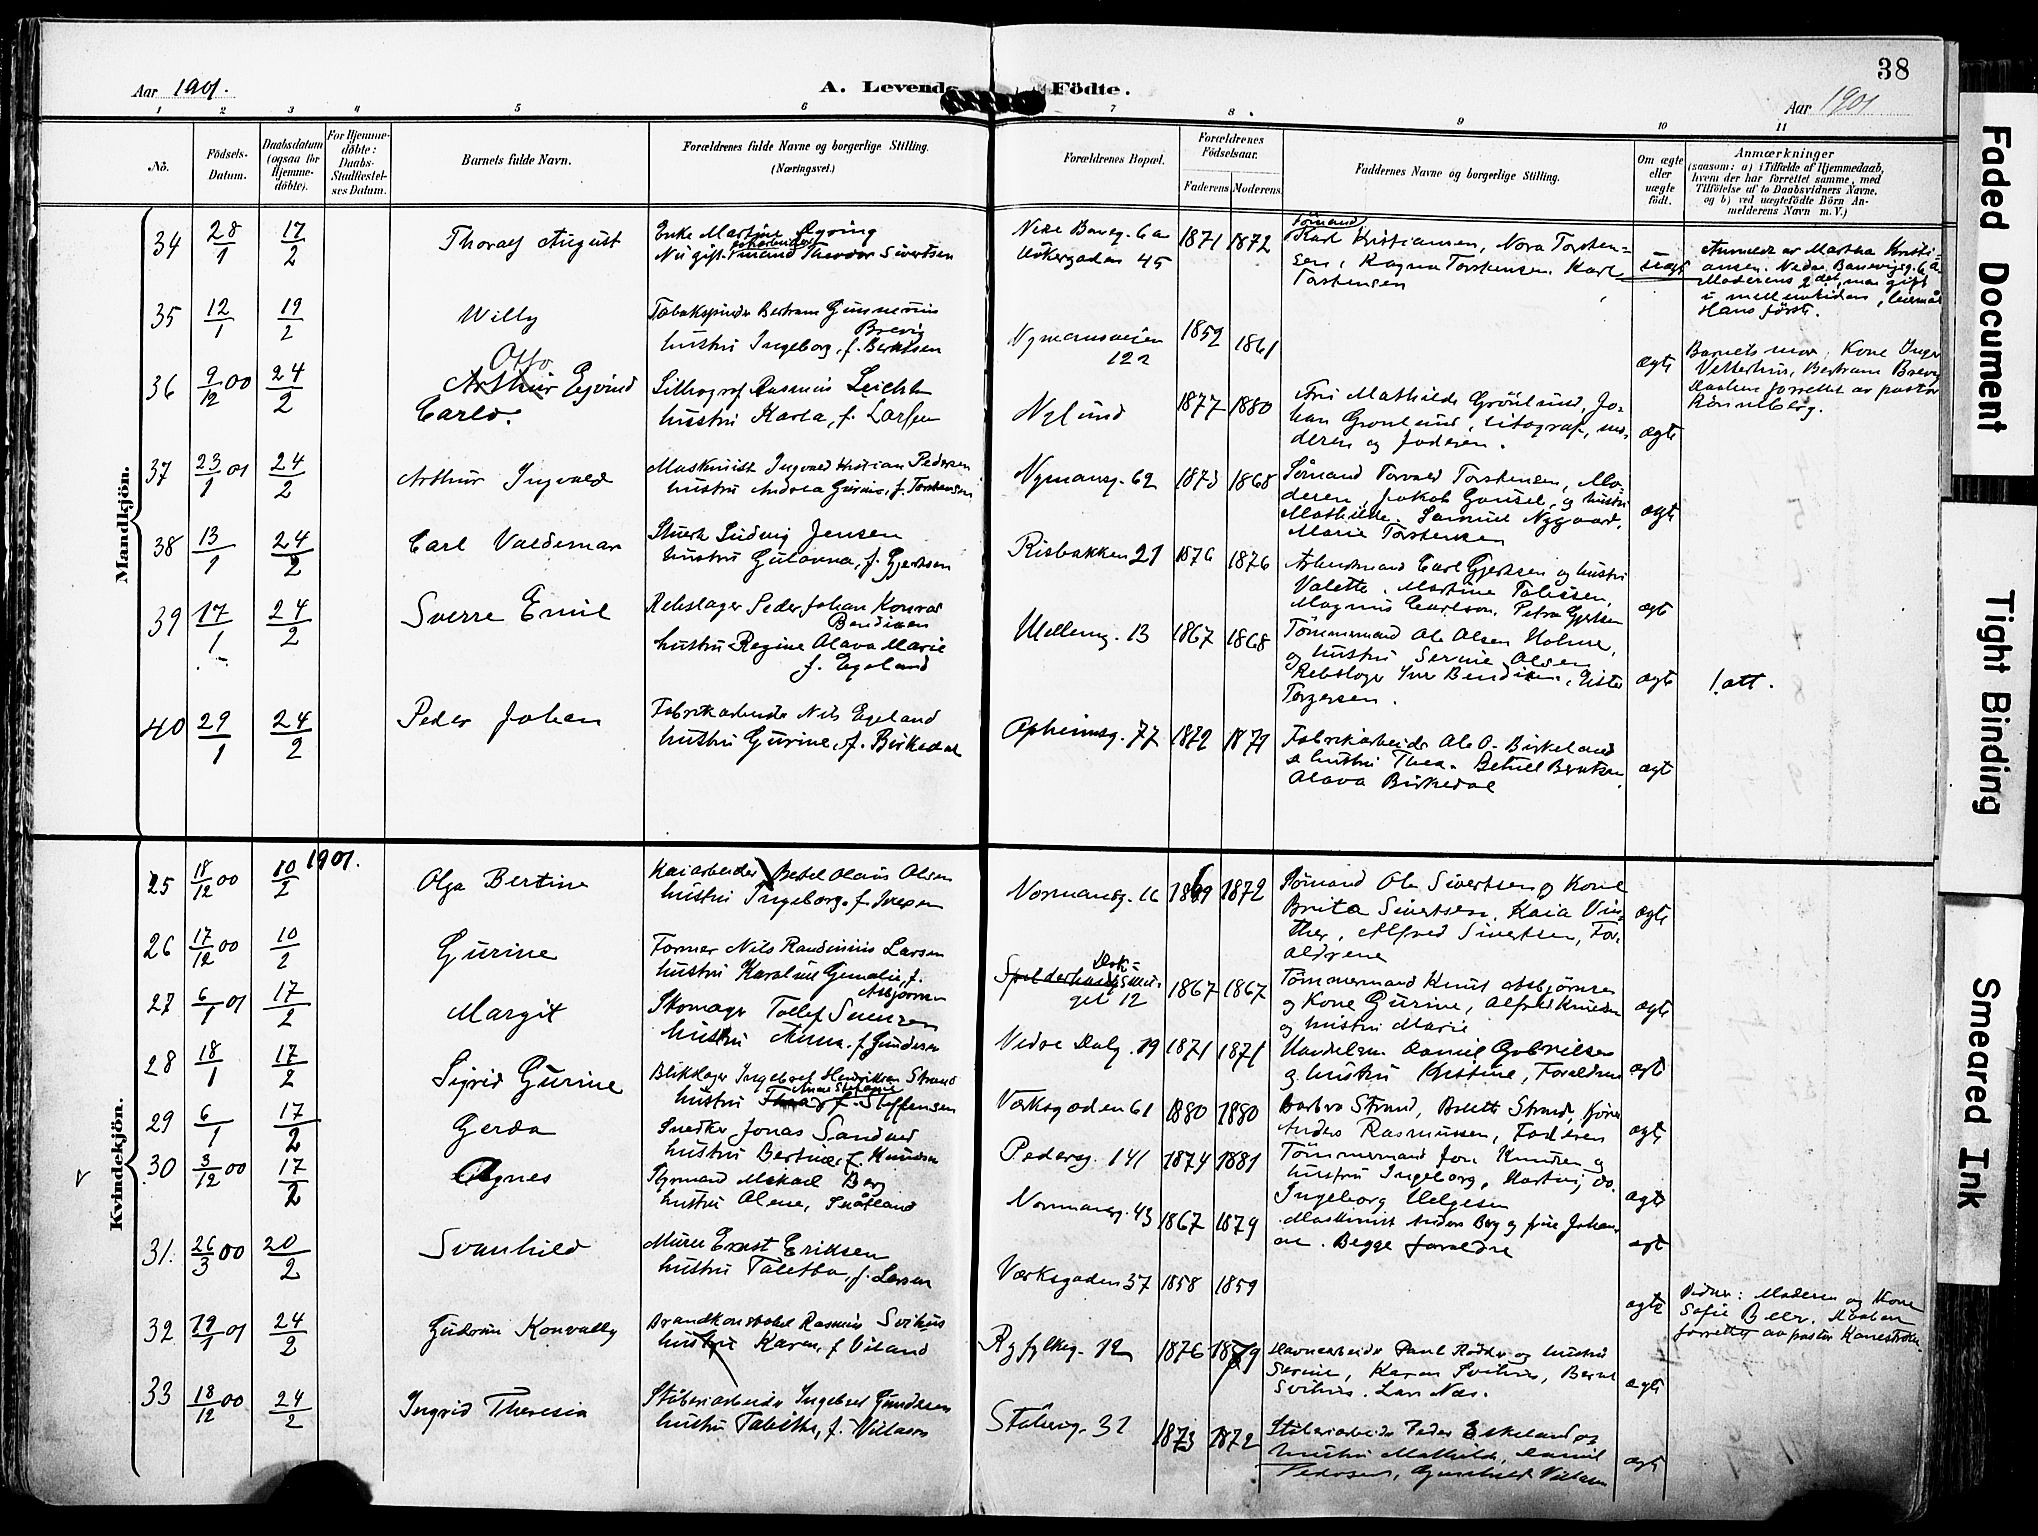 38
Aar 1901.
A. Levende Födte.
Aar 1901
1 2 3 4 5 6 7 8 9 10 11
No.
Födsels-
Datum.
Daabsdatum
(ogsaa for
Hjemme-
döbte).
For Hjemme-
döbte:
Daabs-
Stadfæstel-
ses Datum.
Barnets fulde Navn.
Forældrenes fulde Navne og borgerlige Stilling.
(Næringsvei.)
Forældrenes Bopæl.
Forældrenes
Födselsaar.
Faderens Moderens.
Faddernes Navne og borgerlige Stilling.
Om ægte
eller
uægte
født.
Anmærkninger
(saasom: a) i Tilfælde af Hjemmedaab,
hvem der har forrettet samme, med
Tilföielse af to Daabsvidners Navne,
og b) ved uægtefödte Börn An-
melderens Navn m. V.)
Mandkjön.
34 28/1 17/2 Thoralf August
Enke Martine
Nu gift Theodor Sivertsen
Nedre Banevg. 6a
45
1871 1872
Sömand
Karl Kristiansen, Nora Torsten-
sen, Ragna Torstensen, Karl
Torstensen
uægt
Anmeldt av Martha Kristi-
ansen. Nedre Banevigsg. 6a
Moderens 2det, man gift
i mellemtiden,
Hans förste.
35 12/1 19/2 Willy
Tobakspinder Bertram Gunnerius
Brevig
hustru Ingeborg, f. Berntsen
Nymansveien
12a
1859 1861
ægte
Barnets mor, Kone Inger
Vetterhus, Bertram Brevig
Daaben forrettet av pastor
Rönneberg.
36 9/12 00 24/2 Otto
Arthur Ejvind
Carlo.
Lithograf Rasmus
hustru Karla, f. Larsen
Nylund
1877 1880
Fru Mathilde Grönlund, Jo-
han Grönlund, litograf, mo-
deren og faderen.
ægte
37 23/1 01 24/2 Arthur Ingvald
Maskinist Ingvald Kristian Pedersen
hustru Andrea Gurine, f. Torstensen
Nymansg. 62
1873 1868
Sömand Torvald Torstensen, Mo-
deren, Jakob Gausel, og hustru
Mathilde, Samuel Nygaard,
Marie Torstensen
ægte
38 13/1 24/2 Carl Valdemar
Stuert Ludvig Jensen
hustru Gulanna, f. Gjertsen
Risbakken 21
1876 1876
Arbeidsmand Carl Gjertsen og hustru
Valette, Martine
Magnus Carlson, Petra Gjertsen
ægte
39 17/1 24/2 Sverre Emil
Rebslager Peder Johan Konrad
Bendixen
hustru Regine Olava Marie
f. Egeland
Mellemg. 13
1867 1868
Tömmermand Ole Olsen Holme,
og hustru Serine Olsen
Rebslager Iver Bendixen,
Torgersen.
ægte
1. att.
40 29/1 24/2 Peder Johan
Fabrikarbeider Nils Egeland
hustru Gurine, f. Birkedal
Opheimsg. 77
1872 1877
Fabrikarbeider Ole O. Birkeland
& hustru Thea. Betuel Berntsen
Olava Birkedal
ægte
Kvindekjön.
1901.
25 18/12 00 10/2 Olga Bertine
Kaiarbeider Betel Olaus Olsen
hustru Ingeborg, f. Iversen
Normansg. 16
1869 1872
Sömand Ole Sivertsen og Kone
Brita Sivertsen, Kaia Vin-
ther, Alfred Sivertsen, For-
ældrene
ægte
26 17/12 00 10/2 Gurine
Former Nils Randinius Larsen
hustru Karoline Gemalie, f.
Asbjörnsen
12
1867 1867
Tömmermand Knut Asbjörnsen
og Kone Gurine, Alfred Knudsen
og hustru Marie
ægte
27 6/1 01 17/2 Margit
Skomager Tollef Svensen
hustru Anna, f. Gundersen
Nedre Dalg. 19
1871 1871
Handelsm. Daniel Gabrielsen
og hustru Kristine, Forældrene
ægt
28 18/1 17/2 Sigrid Gurine
Blikslager Ingebret Henriksen Strand
hustru f. Steffensen
Verksgaden 61
1880 1880
Barbro Strand, Berett Strand, Kone
Anders Rasmussen, Faderen
ægte
29 6/1 17/2 Gerda
Snedker Jonas Sandved
hustru Bertine, f. Knudsen
Pedersg. 141
1874 1881
Tömmermand Jon Knudsen og
hustru Ingeborg, Hartvig do.
Ingeborg Helgesen
ægte
√ 30 3/12 00 17/2 Agnes
Styrmand Mikael Berg
hustru Olene, Snåtland
Normansg. 43
1867 1879
Maskinist Anders Berg og frue Johan-
ne. Begge forældre
ægt
31. 26/3 00 20/2 Svanhild
Murer Ernst Eriksen
hustru Taletta, f. Larsen
Verksgaden 37
1858 1859
ægte
Vidner: Moderen og Kone
Sofie Beer. Daaben
forrettet av pastor
32 19/1 01 24/2 Gudrun Konvally
Brandkonstabel Rasmus Svihus
hustru Karen, f. Viland
Ryfylkeg. 12
1876 1879
Havnearbeider Paul Rödder og hustru
Serine, Karen Svihus, Bernt
Svihus. Lars Næs.
ægte
33 18/12 00 24/2 Ingrid Theresia
Stöberiarbeider Ingebret Gundersen
hustru Tabitha, f.
Støberig. 31
1873 1872
Stöberiarbeider Peder Eskeland og
hustru Mathilde, Daniel
Pedersen, Gunhild
ægt
Faded Document
Tight Binding
Smeared Ink